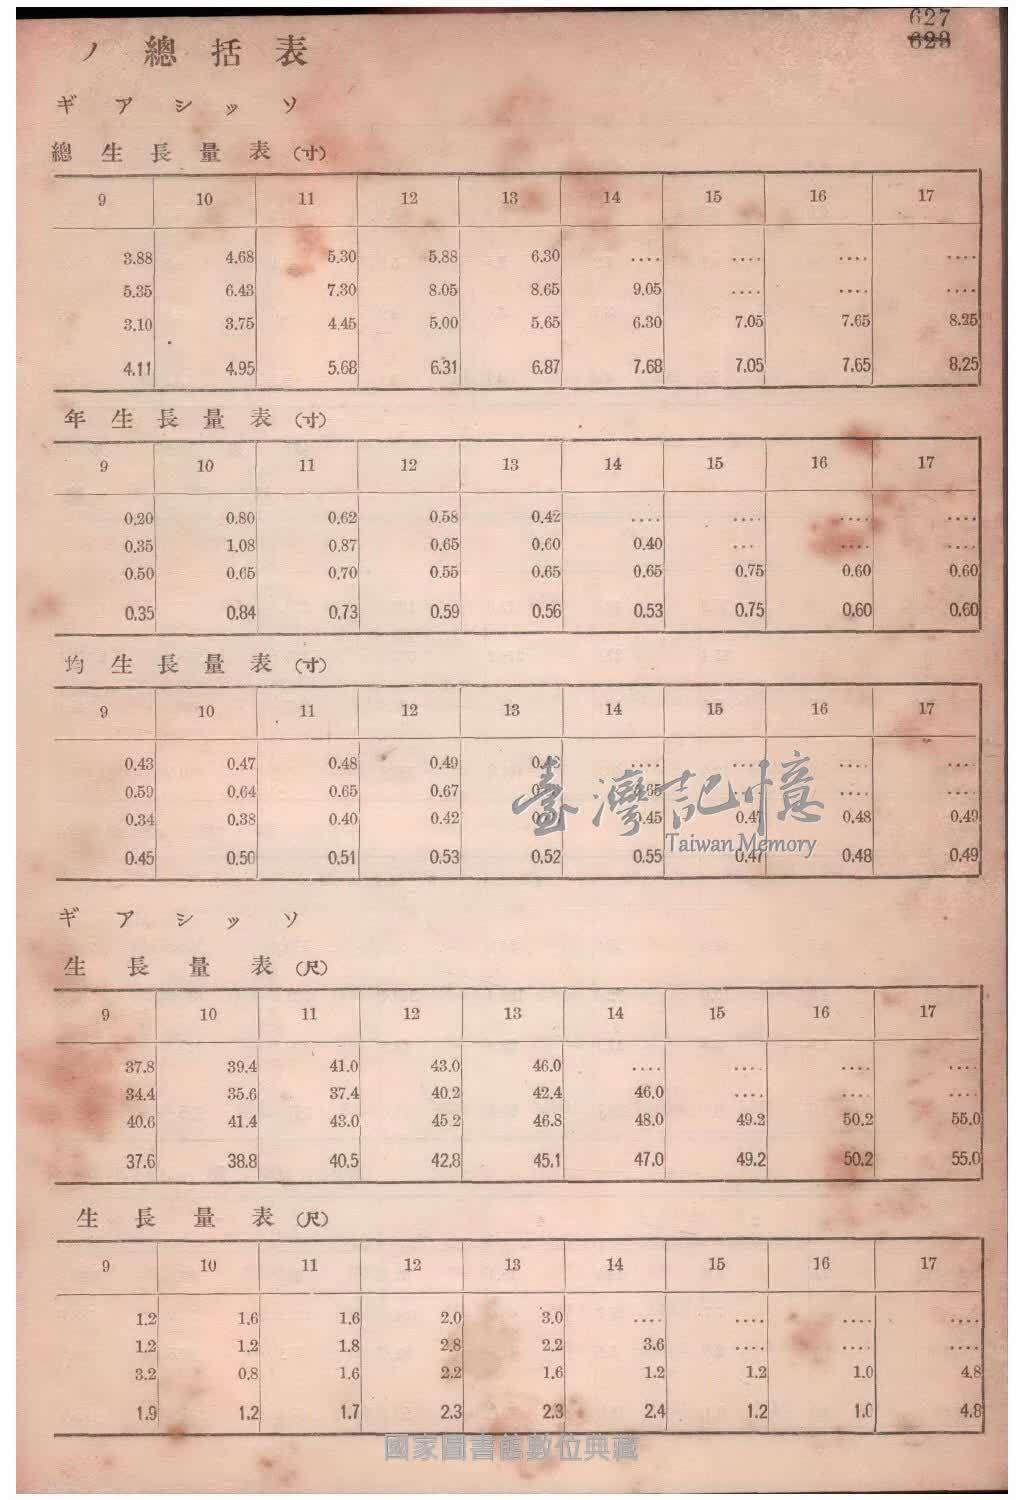 627
623
ノ 總 括 表
ギ ア シ ッ ソ
總 生 長 量 表 (寸)
9 10 11 12 13 14 15 16 17
3.88 4.68 5.30 5.88 6.30 .... .... .... ....
5.35 6.43 7.30 8.05 8.65 9.05 .... .... ....
3.10 3.75 4.45 5.00 5.65 6.30 7.05 7.65 8.25
4.11 4.95 5.68 6.31 6.87 7.68 7.05 7.65 8.25
年 生 長 量 表 (寸)
9 10 11 12 13 14 15 16 17
0.20 0.80 0.62 0.58 0.42 .... .... .... ....
0.35 1.08 0.87 0.65 0.60 0.40 ... .... ....
0.50 0.65 0.70 0.55 0.65 0.65 0.75 0.60 0.60
0.35 0.84 0.73 0.59 0.56 0.53 0.75 0.60 0.60
均 生 長 量 表 (寸)
9 10 11 12 13 14 15 16 17
0.43 0.47 0.48 0.49 .... .... .... ....
0.59 0.64 0.65 0.67 .... .... ....
0.34 0.38 0.40 0.42 0.45 0.47 0.48 0.49
0.45 0.50 0.51 0.53 0.52 0.55 0.47 0.48 0.49
臺灣記憶
Taiwan Memory
ギ ア シ ッ ソ
生 長 量 表 (尺)
9 10 11 12 13 14 15 16 17
37.8 39.4 41.0 43.0 46.0 .... .... .... ....
34.4 35.6 37.4 40.2 42.4 46.0 .... .... ....
40.6 41.4 43.0 45.2 46.8 48.0 49.2 50.2 55.0
37.6 38.8 40.5 42.8 45.1 47.0 49.2 50.2 55.0
生 長 量 表 (尺)
9 10 11 12 13 14 15 16 17
1.2 1.6 1.6 2.0 3.0 .... .... .... ....
1.2 1.2 1.8 2.8 2.2 3.6 .... .... ....
3.2 0.8 1.6 2.2 1.6 1.2 1.2 1.0 4.8
1.9 1.2 1.7 2.3 2.3 2.4 1.2 1.0 4.8
國家圖書館數位典藏